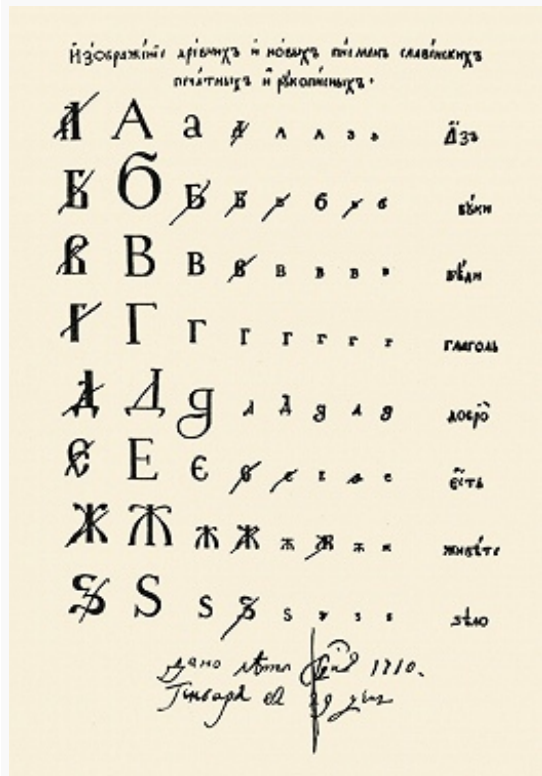 Изображенїе дре́внихъ и но́выхъ пи́сменъ славе́нскихъ
печа́тныхъ и рꙋкопи́сныхъ.
А А а а а а а а А҆́зъ
Б б Б Б б б б б бꙋ́ки
В В В В В В В В вѣ́ди
Г Г Г Г Г Г Г Г глаго́ль
Д Д д д Д д д д добро̀
Є Е є є є є є є є҆́сть
Ж Ж ж Ж ж Ж ж ж живѣ́те
Ѕ Ѕ ѕ Ѕ ѕ ѕ ѕ ѕ ѕѣло̀
Дано лѣта 1710.
Генваря в 29 день